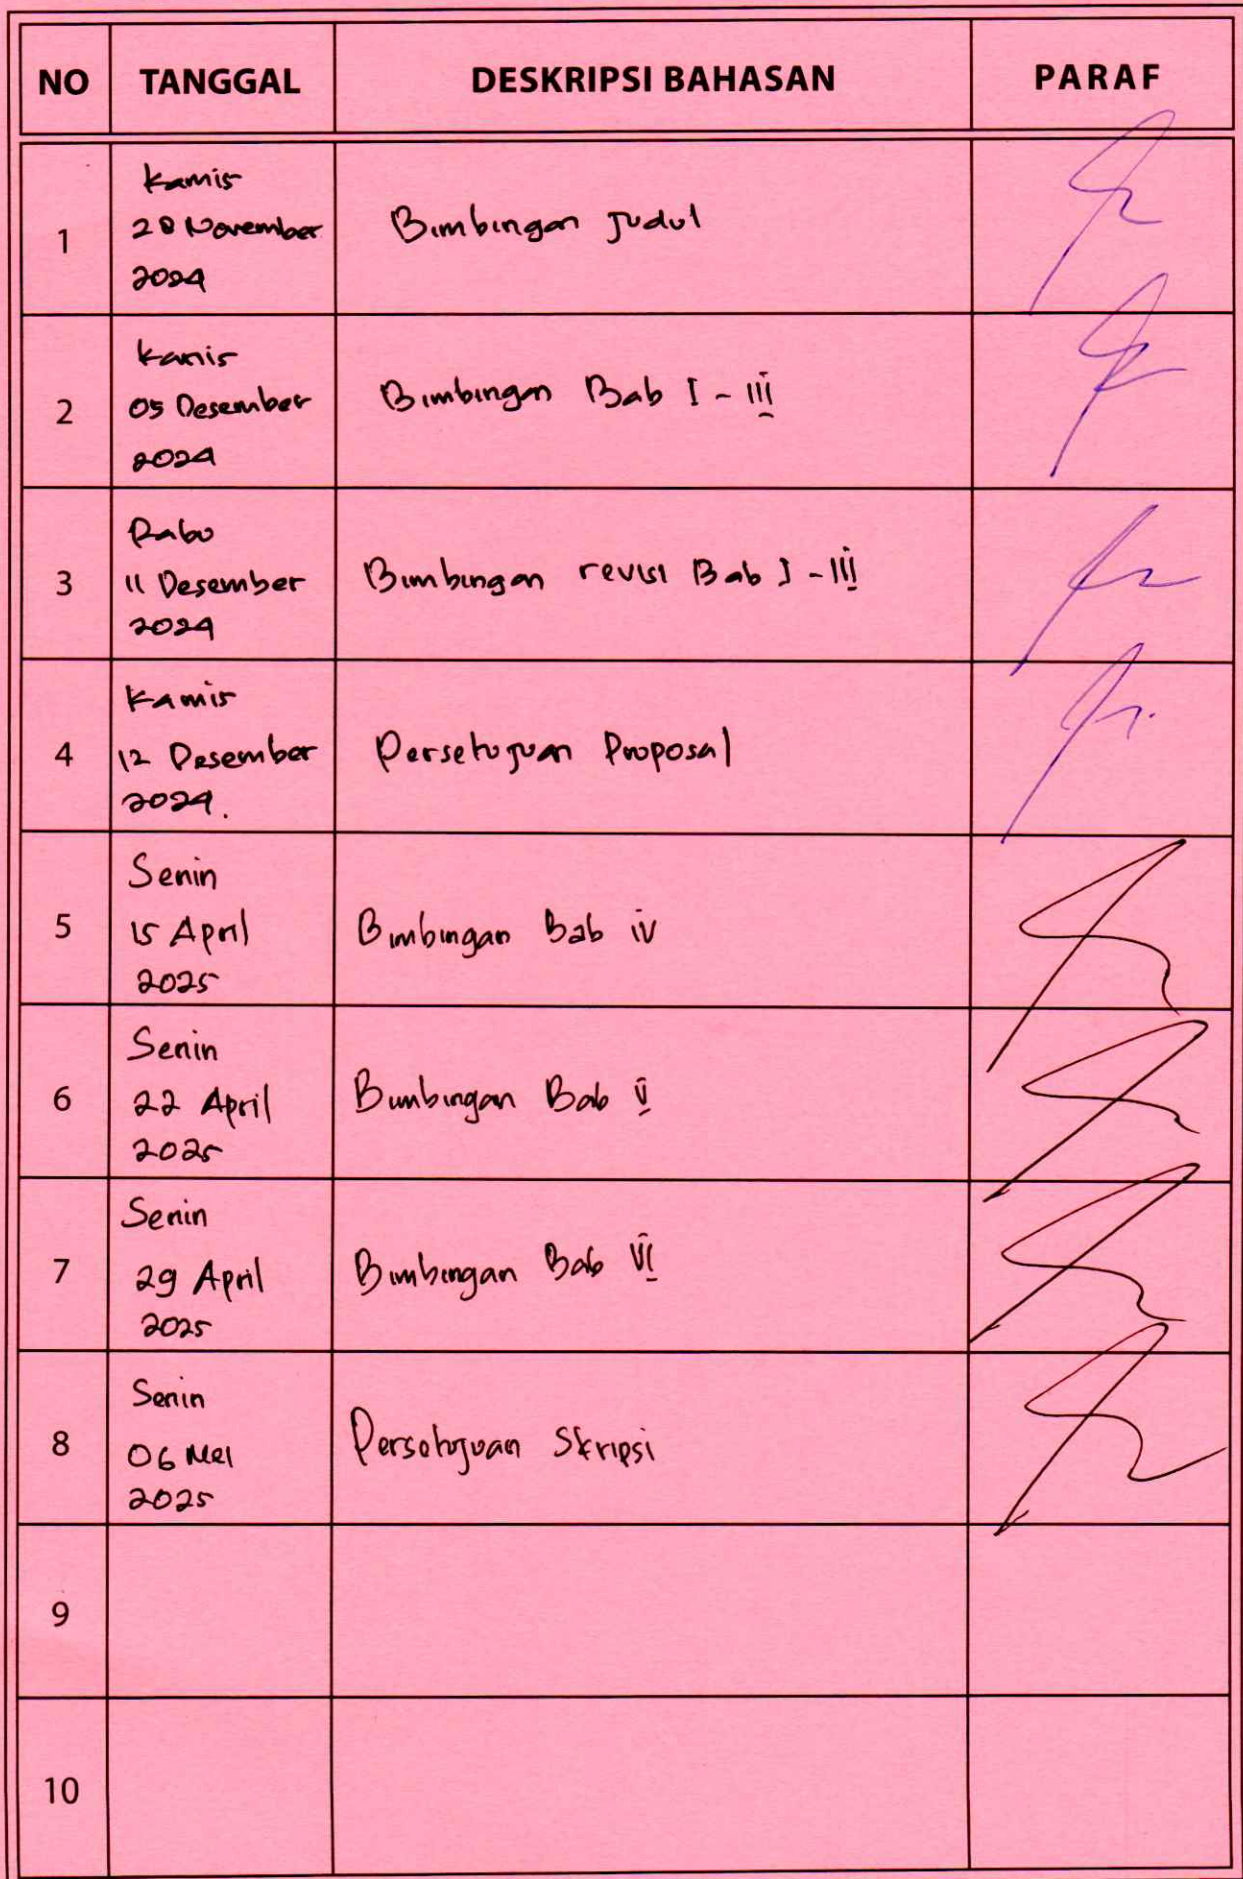 NO TANGGAL DESKRIPSI BAHASAN PARAF
1
Kamis
28 November
2024
Bimbingan Judul
2
Kamis
05 Desember
2024
Bimbingan Bab I - III
3
Rabo
11 Desember
2024
Bimbingan revisi Bab I - III
4
Kamis
12 Desember
2024.
Persetujuan Proposal
5
Senin
15 April
2025
Bimbingan Bab IV
6
Senin
22 April
2025
Bimbingan Bab V
7
Senin
29 April
2025
Bimbingan Bab VI
8
Senin
06 Mei
2025
Persetujuan Skripsi
9
10